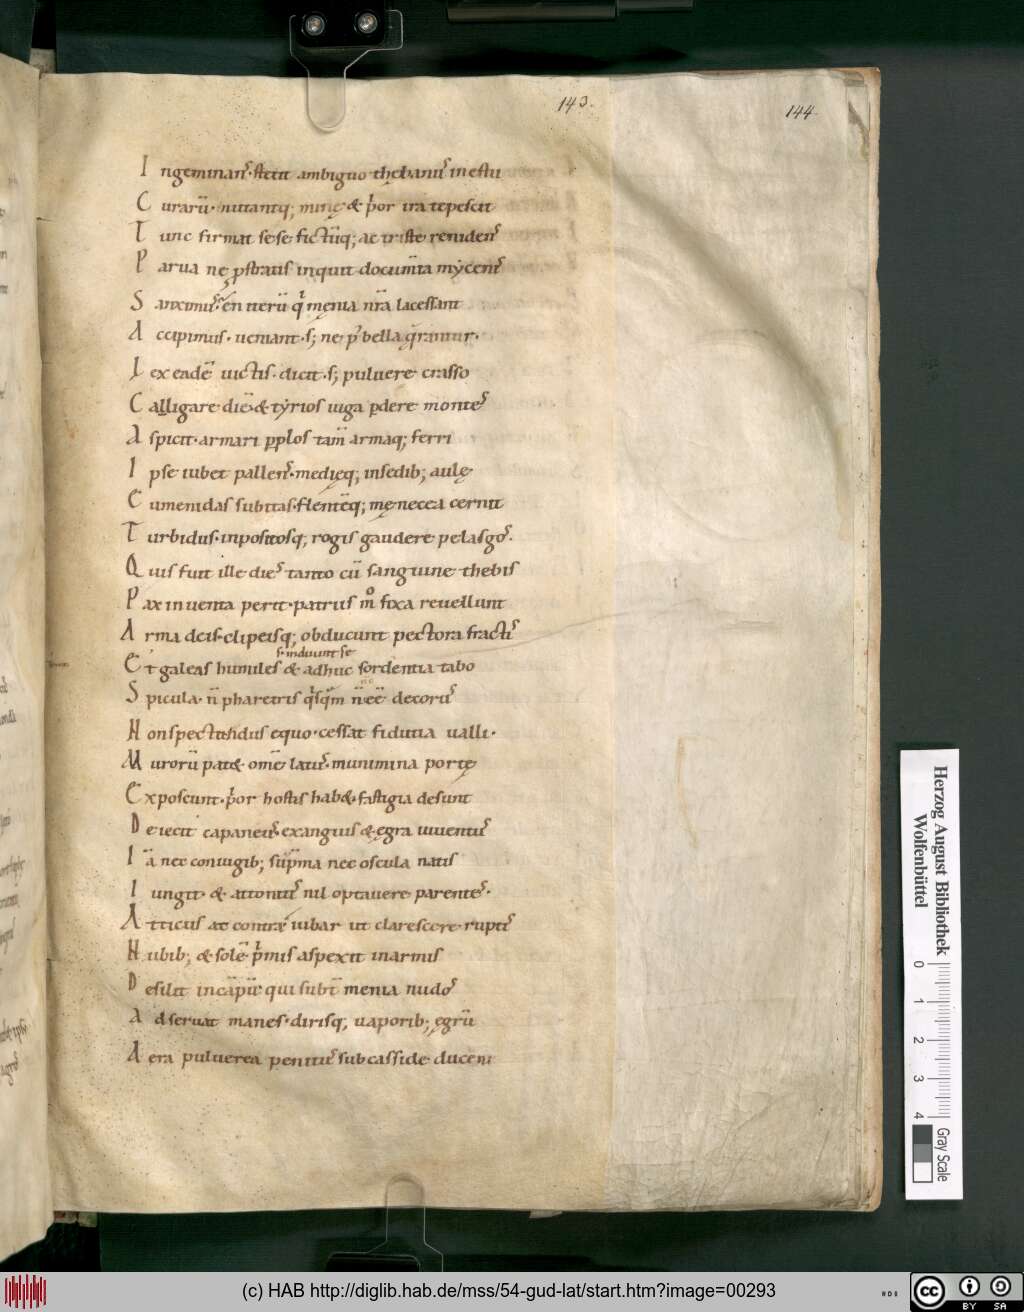 143.
144.
I ngeminanſ. ſtetit ambiguo thebanuſ in eſtu
C uraru̅. nutantq; minę & p̍or ira tepeſcit
T unc firmat ſeſe fictu̅q; ac triſte renidenſ
P arua nę pſtratis inquit docum̅ta mẏcenſ
S anximuſ. en iteru̅ q̍ męnia nr̅a laceſſant
A ccipimus. ueniant. ſ; ne p᷒ bella grantur.
I ex eade̅ uictiſ. dicit. ſ; puluere craſſo
C alligare die̅ & tẏrios iuga pdere monteſ
A ſpicit. armari pplos tam̅ armaq; ferri
I pſe iubet pallenſ. medięq; inſedib; aulę
E umenidas ſubitas. flente̅q; menecea cernit
T urbidus. inpoſitoſq; rogis gaudere pelaſgoſ.
Q uis fuit ille dieſ tanto cu̅ ſanguine thebis
P ax inuenta perit. patriis m̊ fixa reuellunt
A rma deiſ. clipeiſq; obducunt pectora fractiſ
ſ. induunt ſe
E t galeas humileſ & adhuc ſordentia tabo
S picula. n̅ pharetris q̍ſq̍m n̅ ee̅ decoruſ
N on ſpectandus equo. ceſſat fiducia ualli.
M uroru̅ pat& om̅e latuſ. munimina portę
E xpoſcunt. p̍or hoſtis hab&. faſtigia deſunt
D eiecit capaneuſ. exanguis & ęgra iuuentuſ
I a̅ nec coniugib; ſup̅ma nec oſcula natis
I ungit. & attonituſ nil optauere parenteſ.
A tticus at contra iubar ut clareſcere ruptiſ
N ubib; & ſole̅ p̍mis aſpexit in armis
D eſilit in ca̅pu̅ qui ſubt̅ menia nudoſ
A dſeruat maneſ. diriſq; uaporib; ęgru̅
A era puluerea penituſ ſub caſſide ducenſ
Herzog August Bibliothek
Wolfenbüttel
0 1 2 3 4
Gray Scale
(c) HAB http://diglib.hab.de/mss/54-gud-lat/start.htm?image=00293
cc BY SA